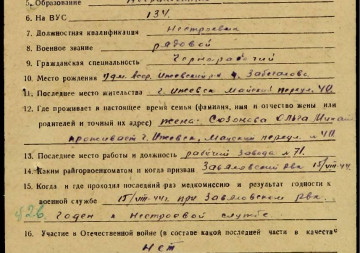 5. Образование
6. На ВУС 134
7. Должностная квалификация Нестроевик
8. Военное звание рядовой
9. Гражданская специальность Чернорабочий
10. Место рождения Удм. АССР, Ижевский р-н, д. Забегалово
11. Последнее место жительства г. Ижевск Майский переул. 40
12. Где проживает в настоящее время семья (фамилия, имя и отчество жены или
родителей и точный их адрес) жена: Созонова Ольга
проживает г. Ижевск, Майский переул. 40
13. Последнее место работы и должность рабочий завода №71.
14. Каким райгорвоенкоматом и когда призван Завьяловским рвк 15/VIII-44
15. Когда и где проходил последний раз медкомиссию и результат годности к
военной службе 15/VIII-44г. при Завьяловском рвк.
Годен к нестроевой службе
16. Участие в Отечественной войне (в составе какой последней части и в качеств
Нет